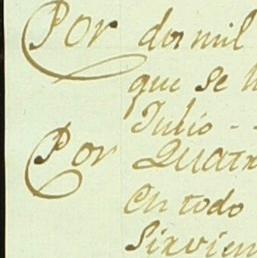 Por dos mil
que se h
Julio - -
Por Quatr
en todo
Sirvien